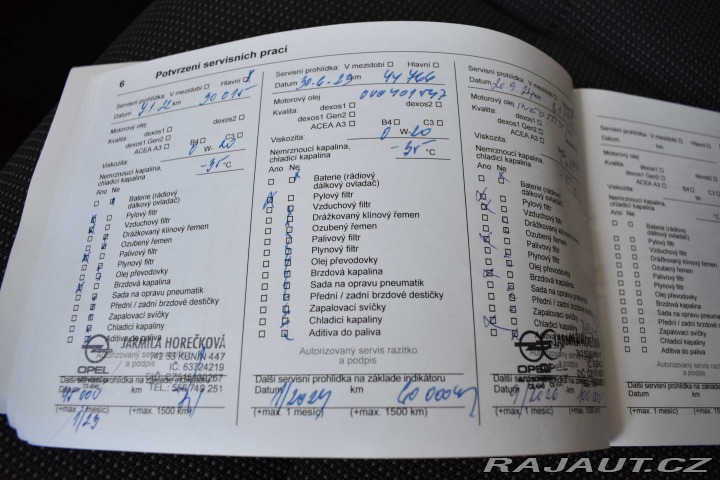 6 Potvrzení servisních prací
Servisní prohlídka: V mezidobí Hlavní
Datum km 30 015
Motorový olej
Kvalita: dexos1 dexos2
dexos1 Gen2
ACEA A3 B4 C3
Viskozita: 0 W- 20
Nemrznoucí kapalina,
chladicí kapalina -35 °C
Ano Ne
Baterie (rádiový
dálkový ovladač)
Pylový filtr
Vzduchový filtr
Drážkovaný klínový řemen
Ozubený řemen
Palivový filtr
Plynový filtr
Olej převodovky
Brzdová kapalina
Sada na opravu pneumatik
Přední / zadní brzdové destičky
Zapalovací svíčky
Chladicí kapaliny
Aditiva do paliva
JARMILA HOREČKOVÁ
742 53 KUNÍN 447
IČ: 63724219
OPEL
Autorizovaný servis razítko
a podpis
Další servisní prohlídka na základe indikátoru
Datum km
(+max. 1 mesíc) (+max. 1500 km)
1/23
Servisní prohlídka: V mezidobí Hlavní
Datum 30.6.23 km 44 466
Motorový olej
Kvalita: dexos1 dexos2
dexos1 Gen2
ACEA A3 B4 C3
Viskozita: 0 W- 20
Nemrznoucí kapalina,
chladicí kapalina -35 °C
Ano Ne
Baterie (rádiový
dálkový ovladač)
Pylový filtr
Vzduchový filtr
Drážkovaný klínový řemen
Ozubený řemen
Palivový filtr
Plynový filtr
Olej převodovky
Brzdová kapalina
Sada na opravu pneumatik
Přední / zadní brzdové destičky
Zapalovací svíčky
Chladicí kapaliny
Aditiva do paliva
Autorizovaný servis razítko
a podpis
Další servisní prohlídka na základe indikátoru
Datum km 60 000
(+max. 1 mesíc) (+max. 1500 km)
Servisní prohlídka: V mezidobí
Datum
Motorový olej
Kvalita: dexos1
dexos1 Gen2
ACEA A3
Viskozita:
Nemrznoucí kapalina,
chladicí kapalina
Ano Ne
Baterie (rádiový
dálkový ovladač)
Pylový filtr
Vzduchový filtr
Drážkovaný klínový
Ozubený řemen
Palivový filtr
Plynový filtr
Olej převodovky
Brzdová kapalina
Sada na opravu
Přední / zadní
Zapalovací svíčky
Chladicí kapaliny
Aditiva do paliva
OPEL
Další servisní prohlídka na základe indikátoru
Datum 100 000
(+max. 1 mesíc) (+max. 1500 km)
Servisní prohlídka: V mezidobí
Datum km
Motorový olej
Kvalita: dexos1
dexos1 Gen2
ACEA A3 B4 C3
Viskozita:
Nemrznoucí kapalina,
chladicí kapalina
Ano Ne
Baterie (rádiový
dálkový ovladač)
Pylový filtr
Vzduchový filtr
Drážkovaný klínový řemen
Ozubený řemen
Palivový filtr
Plynový filtr
Olej převodovky
Brzdová kapalina
Sada na opravu pneumatik
Přední / zadní brzdové destičky
Zapalovací svíčky
Chladicí kapaliny
Aditiva do paliva
Autorizovaný servis razítko
a podpis
Další servisní prohlídka na základe indikátoru
Datum km
(+max. 1 mesíc) (+max. 1500 km)
RAJAUT.CZ